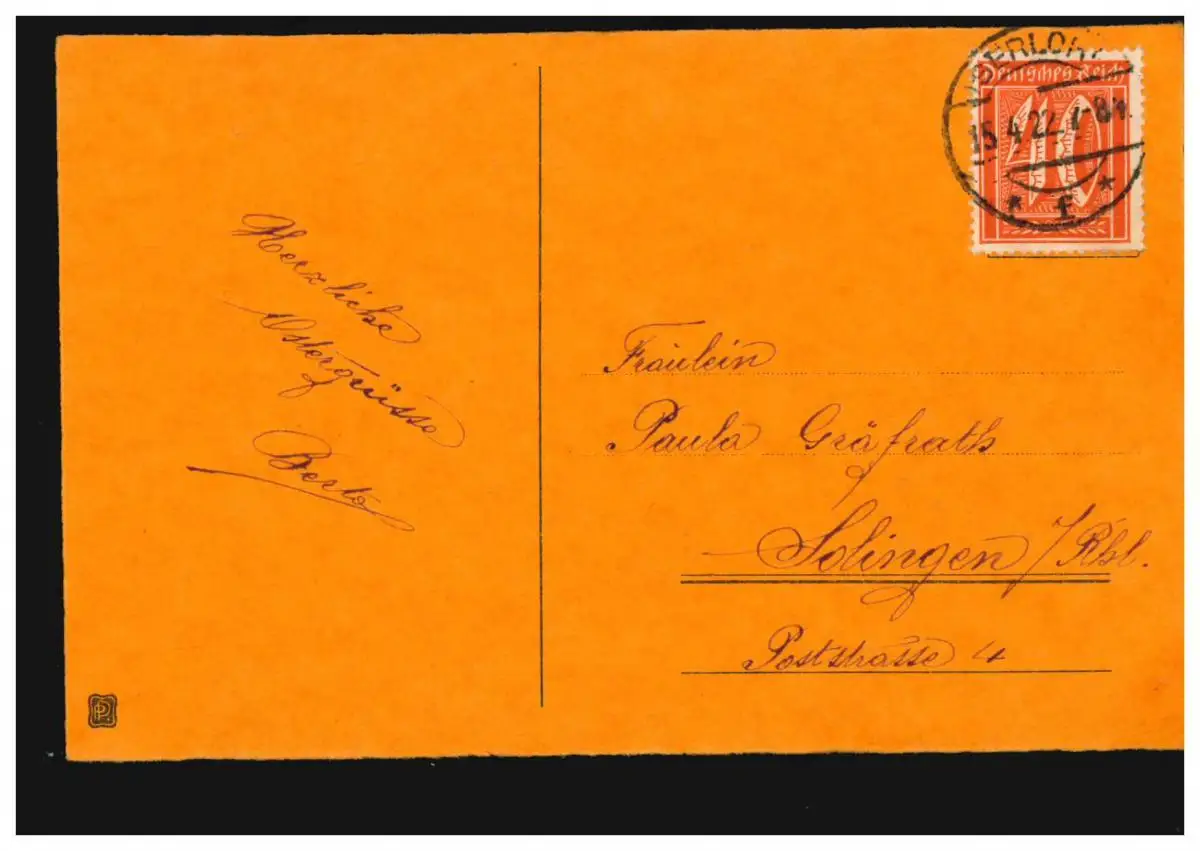 Herzliche
Ostergrüsse
Berta
Deutsches Reich
40
15.4.22. 7-8
* f *
Fräulein
Paula Gräfrath
Solingen /Rhl.
Poststrasse 4